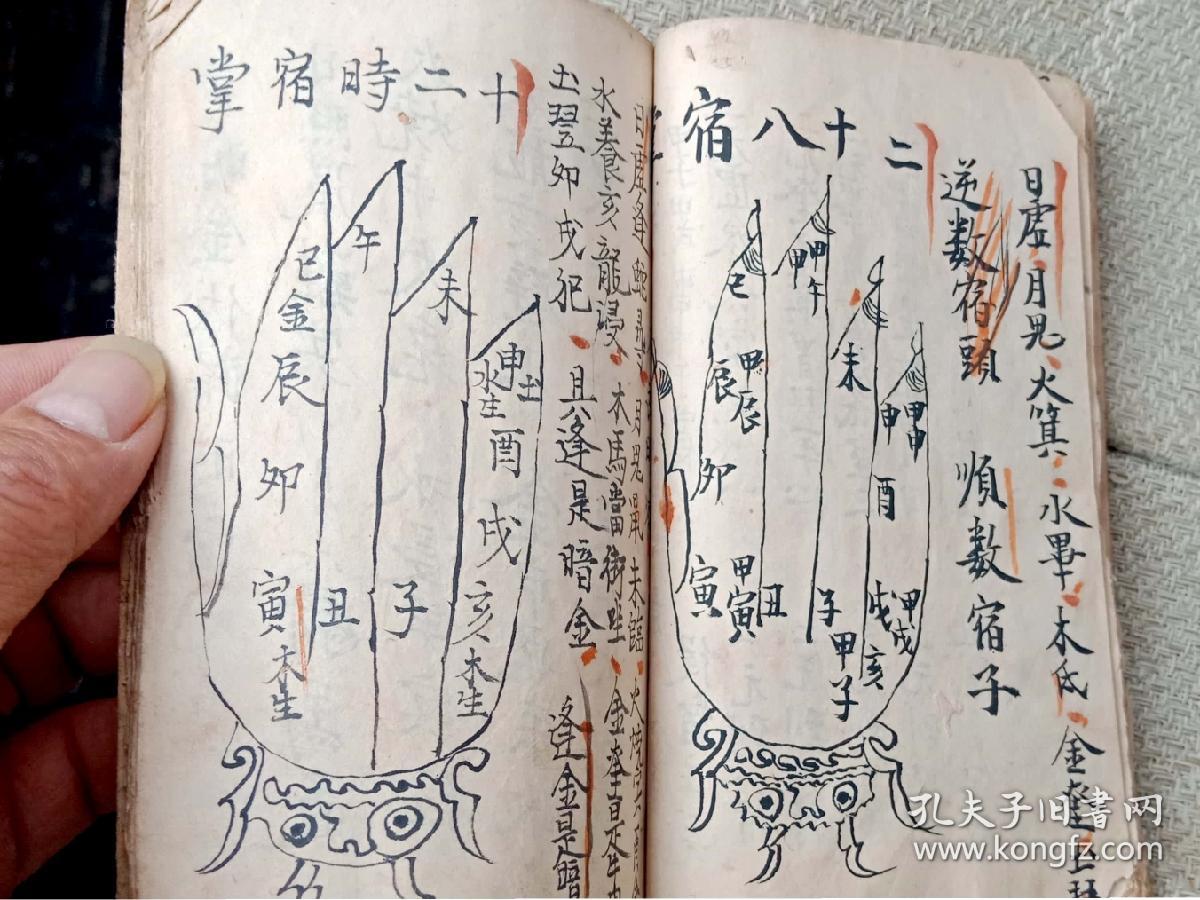 日虛月鬼火箕水畢木氐金奎土
逆數宿頭 順數宿子
二十八宿
巳
甲午
甲
未
甲申
申
辰
甲辰
卯
酉
寅
甲寅
丑
子
甲子
甲戌
戌
亥
水養亥龍浸木馬當街坐金奎
土翌卯戌犯具逢是暗金逢金是暗
十二時宿掌
午
巳金
未
申土
水生
辰
酉
卯
戌
寅木生
丑
子
亥木生
孔夫子旧書网
www.kongfz.com